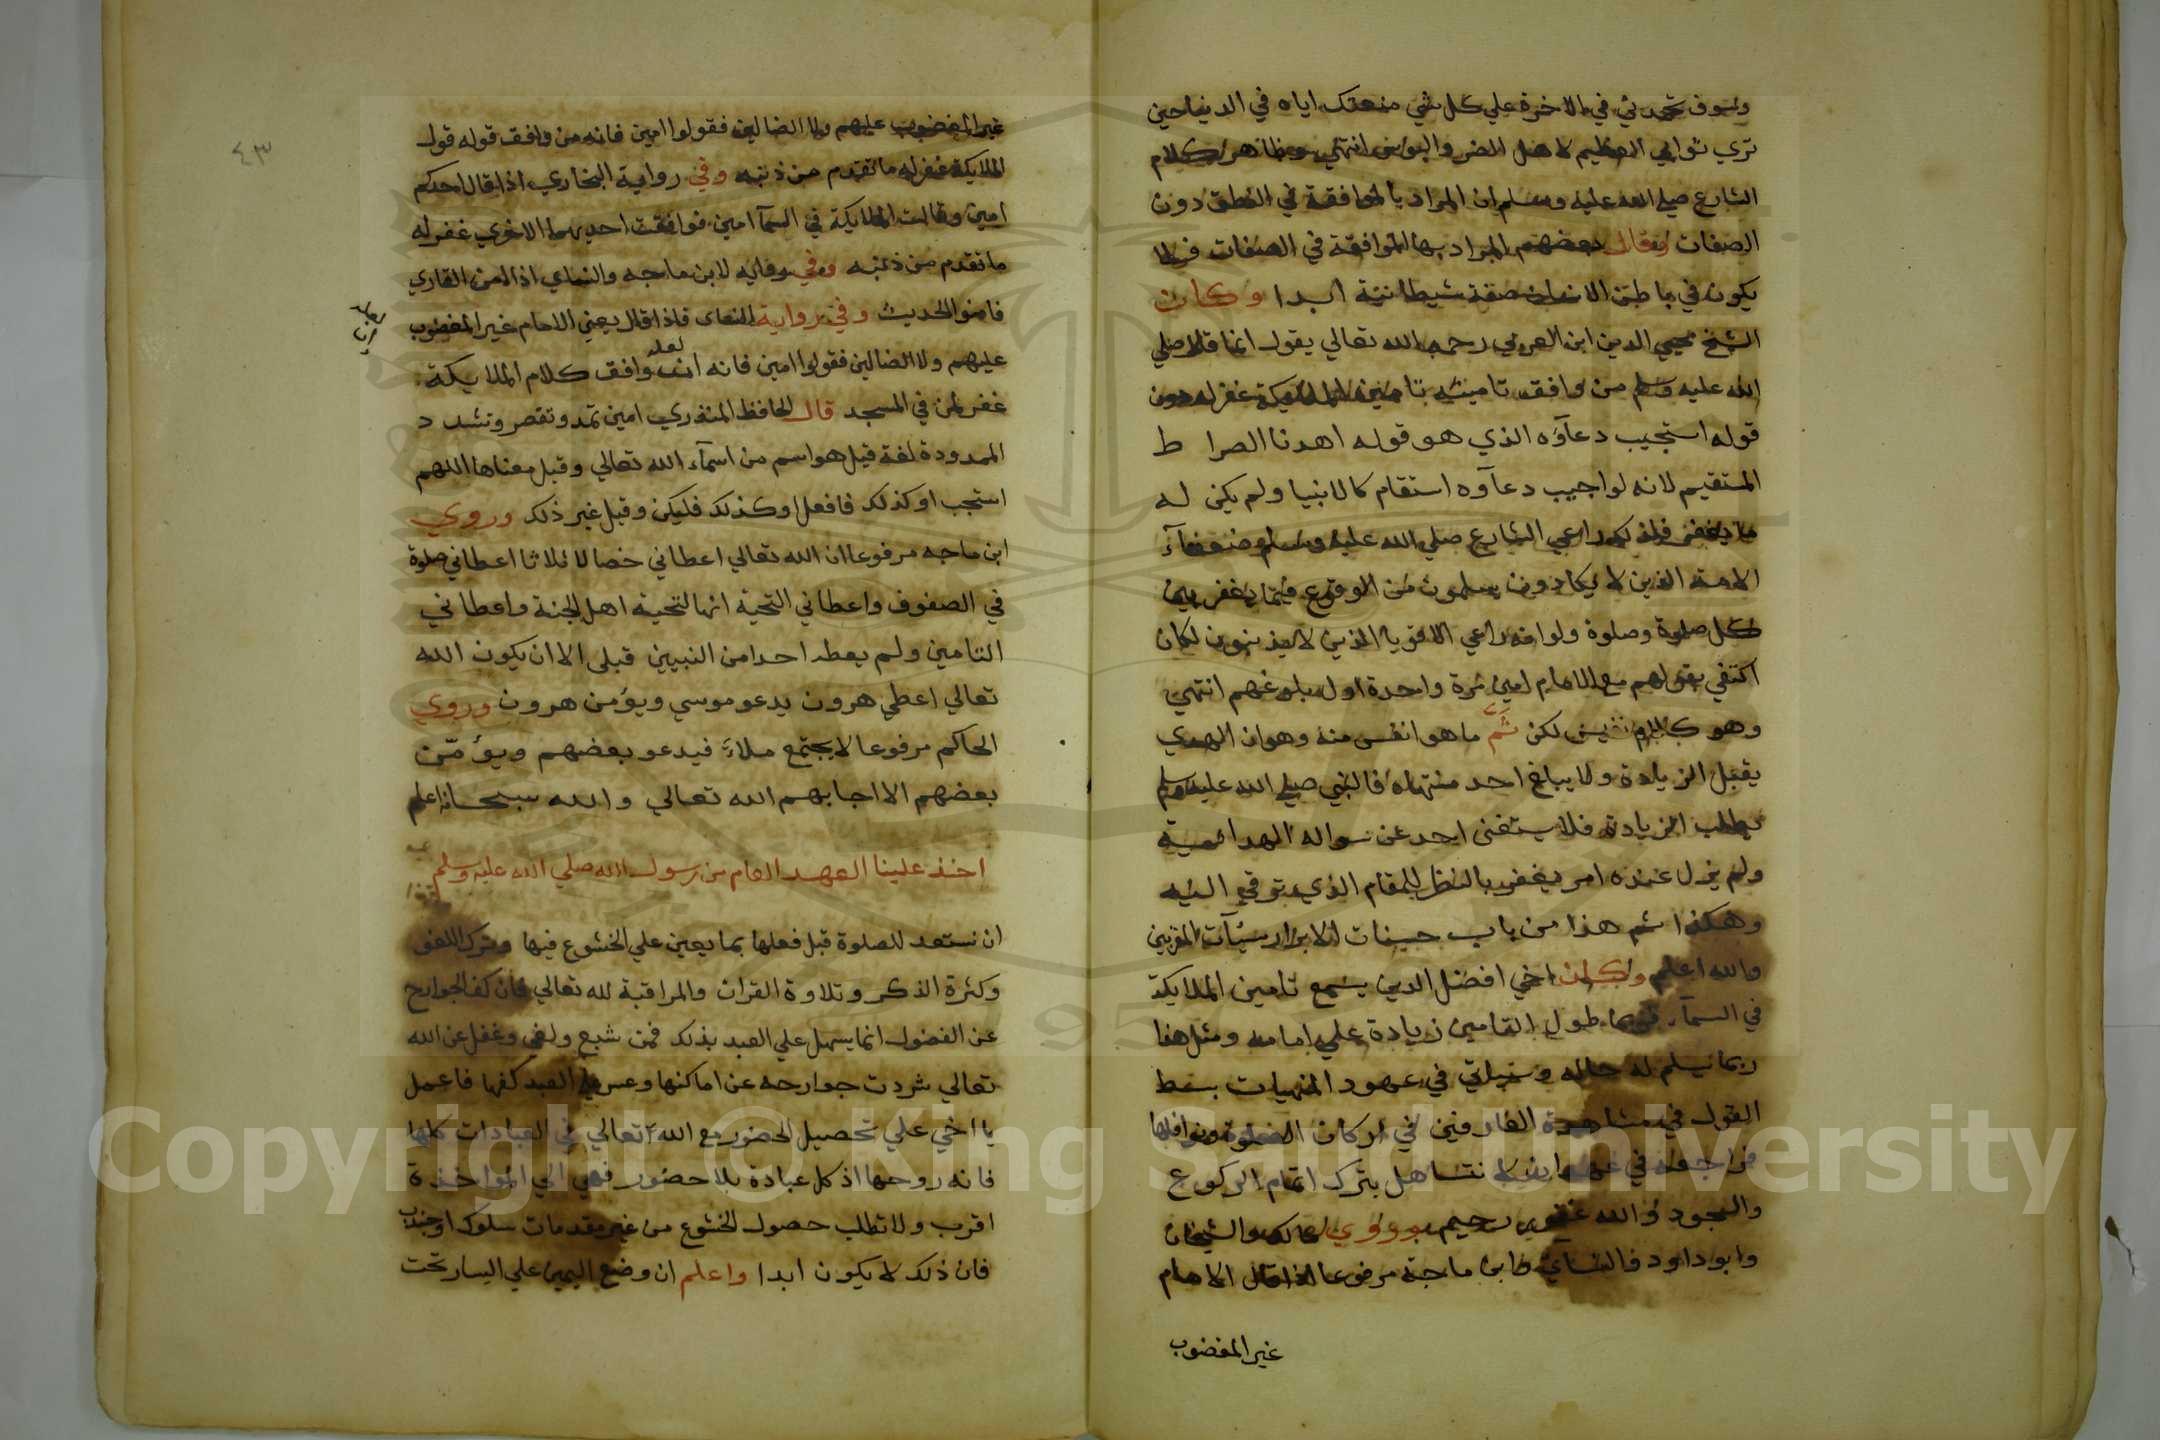 وسوف تحمدني في الاخرة علي كل شي منعتك اياه في الدنيا حين
تري ثوابي العظيم لاهل الضر والبوس انتهي وظاهر كلام
الشارع صلي الله عليه وسلم ان المراد بالموافقة في النطق دون
الصفات وقال بعضهم المراد بها الموافقة في الصفات فلا
يكون في باطن الانسان صفة شيطانية ابدا وكان
الشيخ محيي الدين ابن العربي رحمه الله تعالي يقول انما قال صلي
الله عليه وسلم من وافق تامينه تامين الملايكة غفر له دون
قوله استجيب دعآؤه الذي هو قوله اهدنا الصرا ط
المستقيم لانه لو اجيب دعآوه استقام كالانبيا ولم يكن له
ما يغفر فلذلك راعي الشارع صلي الله عليه وسلم ضعفآء
الامة الذين لا يكادون يسلمون من الوقوع فيما يغفر بين
كل صلوة وصلوة ولو انه راعي الاقويا الذين لا يذنبون لكان
اكتفي بقولهم مع الامام امين مرة واحدة اول بلوغهم انتهي
وهو كلام نفيس لكن ثم ما هو انفس منه وهو ان الهدي
يقبل الزيادة ولا يبلغ احد منتهاه فالنبي صلي الله عليه وسلم
يطلب الزيادة فلا يستغنى احد عن سواله الهداية
ولم يزل عنده امر يغفر بالنظر للمقام الذي يترقي اليه
وهكذا ثم هذا من باب حسنات الابرار سيآت المقربين
والله اعلم ولكن اخي افضل الدين يسمع تامين الملايكة
في السمآء فربما طول التامين زيادة علي امامه ومثل هذا
ربما يسلم له حاله وسياتي في عهود المنهيات بسط
القول في مشاهدة العارفين في اركان الصلوة ونوافلها
فراجعه في عهد ان لا نتساهل بترك اتمام الركوع
والسجود والله غفور رحيم وروي مالك والشيخان
وابو داود والنسآئي وابن ماجة مرفوعا اذا قال الامام
غير المغضوب
٤٣
غير المغضوب عليهم ولا الضالين فقولوا امين فانه من وافق قوله قول
الملايكة غفر له ما تقدم من ذنبه وفي رواية البخاري اذا قال احدكم
امين وقالت الملايكة في السمآ امين فوافقت احديهما الاخري غفر له
ما تقدم من ذنبه وفي رواية لابن ماجه والنساي اذا امن القاري
فامنوا الحديث وفي رواية للنساى فاذا قال يعني الامام غير المغضوب
عليهم ولا الضالين فقولوا امين فانه ان وافق كلام الملايكة
لعله
غفر لمن في المسجد قال الحافظ المنذري امين تمد وتقصر وتشد د
الممدودة لغة قيل هو اسم من اسمآء الله تعالي وقيل معناها اللهم
استجب او كذلك فافعل او كذلك فليكن وقيل غير ذلك وروي
ابن ماجه مرفوعا ان الله تعالي اعطاني خصالا ثلاثا اعطاني صلوة
في الصفوف واعطاني التحية انها لتحية اهل الجنة واعطاني
التامين ولم يعطه احدا من النبيين قبلى الا ان يكون الله
تعالي اعطي هرون يدعو موسي ويؤمن هرون وروي
الحاكم مرفوعا لا يجتمع ملاء فيدعو بعضهم ويؤمّن
بعضهم الا اجابهم الله تعالي والله سبحانه اعلم
اخذ علينا العهد العام من رسول الله صلي الله عليه وسلم
ان نستعد للصلوة قبل فعلها بما يعين علي الخشوع فيها وترك اللغو
وكثرة الذكر وتلاوة القران والمراقبة لله تعالي فان كف الجوارح
عن الفضول انما يسهل علي العبد بذلك فمن شبع ولغي وغفل عن الله
تعالي شردت جوارحه عن اماكنها وعسر علي العبد كفها فاعمل
يا اخي علي تحصيل الحضور مع الله تعالي في العبادات كلها
فانه روحها اذ كل عبادة بلا حضور فهي الي المواخذة
اقرب ولا تطلب حصول الخشوع من غير مقدمات سلوك او جذب
فان ذلك لا يكون ابدا واعلم ان وضع اليمين علي اليسار تحت